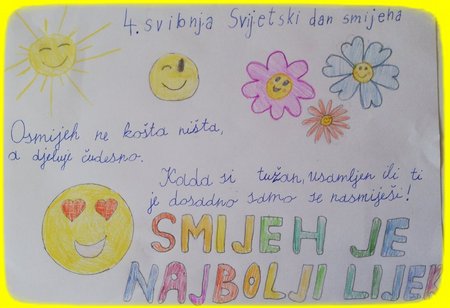 4. svibnja Svjetski dan smijeha
Osmijeh ne košta ništa,
a djeluje čudesno.
Kada si tužan, usamljen ili ti
je dosadno samo se nasmiješi!
SMIJEH JE
NAJBOLJI LIJEK